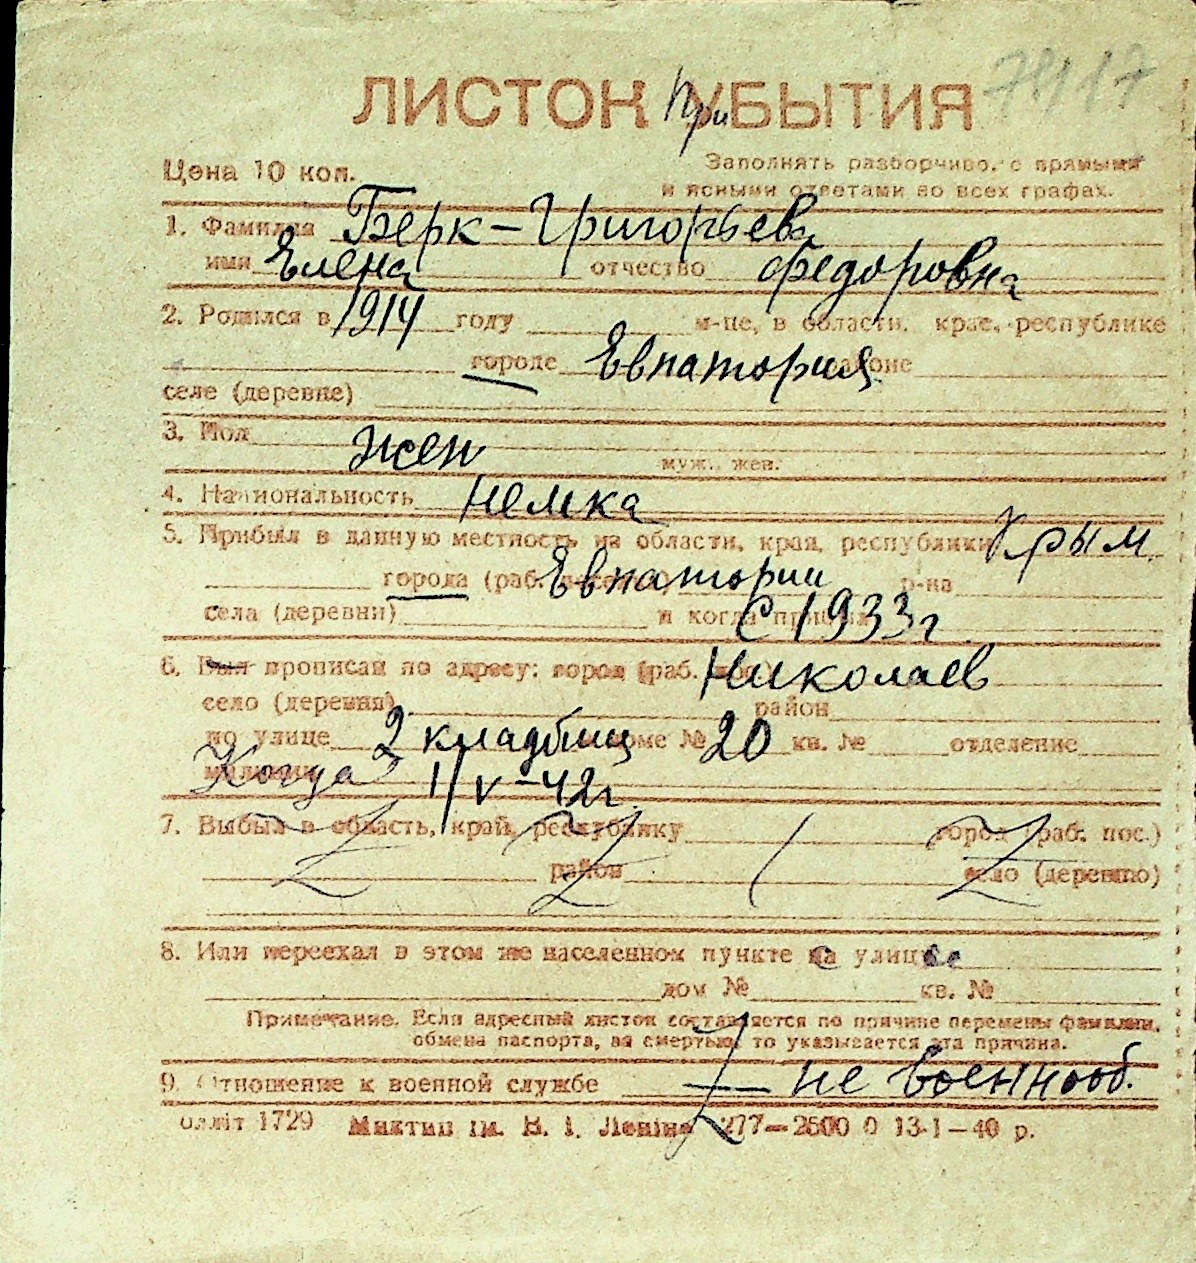 ЛИСТОК При УБЫТИЯ 7417
Цена 10 коп.
Заполнять разборчиво, с прямыми
и ясными ответами во всех графах.
1. Фамилия Берк-Григорьева
имя Елена отчество Федоровна
2. Родился в 1914 году м-це, в области, крае, республике
городе Евпатория районе
селе (деревне)
3. Пол жен
муж., жен.
4. Национальность немка
5. Прибыл в данную местность из области, края, республики Крым
города (раб. Евпатории р-на
села (деревни) и когда прибыл с 1933 г
6. Был прописан по адресу: город (раб. пос.) Николаев
село (деревня) район
по улице 2 кладбищ доме № 20 кв. № отделение
милиции Когда? 1/V-42г.
7. Выбыл в область, край, республику город (раб. пос.)
район село (деревню)
8. Или переехал в этом же населенном пункте на улице
дом № кв. №
Примечание. Если адресный листок составляется по причине перемены фамилии,
обмена паспорта, за смертью, то указывается эта причина.
9. Отношение к военной службе — не военнооб.
олліт 1729 Миктип ім. В. І. Леніна 277—2500 0 13-1—40 р.